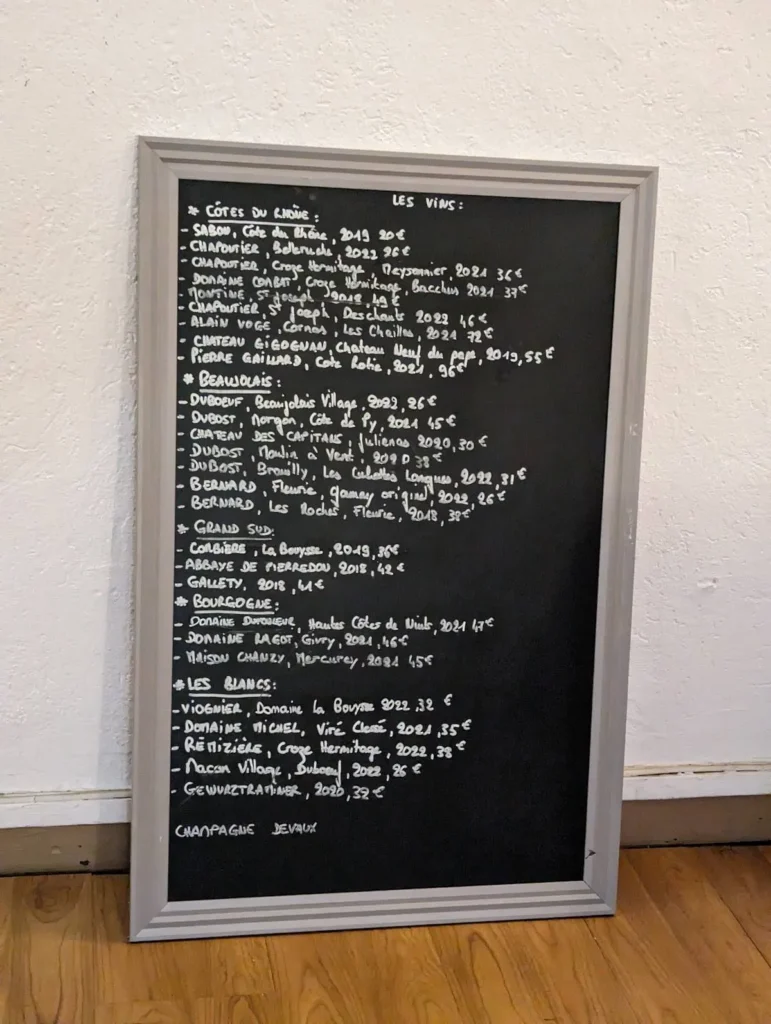 LES VINS :
* CÔTES DU RHÔNE :
- SABON, Côte du Rhône, 2019 20€
- CHAPOUTIER, Belleruche, 2022 26€
- CHAPOUTIER, Croze Hermitage, Meysonnier, 2021 36€
- DOMAINE COMBAT, Croze Hermitage, Bacchus 2021 37€
- MONTINE, St Joseph, 2018, 49€
- CHAPOUTIER, St Joseph, Deschants 2022 46€
- ALAIN VOGE, Cornas, Les Chailles, 2021 72€
- CHATEAU GIGOGNAN, Chateau Neuf du pape, 2019, 55€
- PIERRE GAILLARD, Cote Rotie, 2021, 96€
* BEAUJOLAIS :
- DUBOEUF, Beaujolais Village, 2022, 26€
- DUBOST, Morgon, Côte de Py, 2021 45€
- CHATEAU DES CAPITANS, Julienas 2020, 30€
- DUBOST, Moulin à Vent, 2020 38€
- DUBOST, Brouilly, Les Longues, 2022, 31€
- BERNARD, Fleurie, gamay origine, 2022, 26€
- BERNARD, Les Roches, Fleurie, 2018, 38€
* GRAND SUD:
- CORBIERE, La Bouysse, 2019, 36€
- ABBAYE DE PIERREDON, 2018, 42€
- GALLETY, 2018, 41€
* BOURGOGNE :
- DOMAINE Hautes Côtes de Nuits, 2021 47€
- DOMAINE RAGOT, Givry, 2021, 46€
- MAISON CHANZY, Mercurey, 2021 45€
* LES BLANCS :
- VIOGNIER, Domaine la Bouysse 2022, 32 €
- DOMAINE MICHEL, Viré Clessé, 2021, 35€
- REMIZIÈRE, Croze Hermitage, 2022, 38€
- Macon Village, Duboeuf, 2022, 26€
- GEWURZTRAMINER, 2020, 32€
CHAMPAGNE DEVAUX